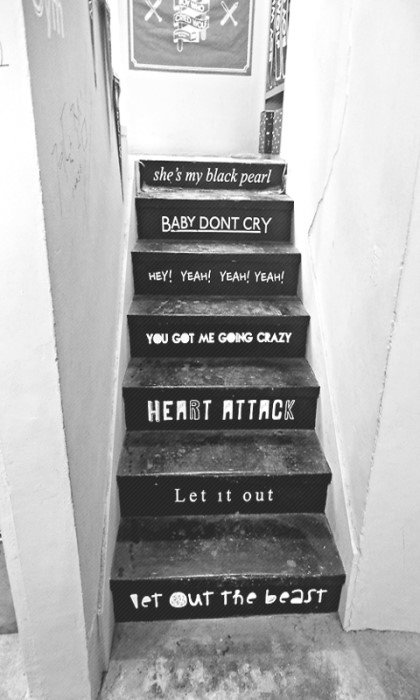 she's my black pearl
BABY DONT CRY
HEY! YEAH! YEAH! YEAH!
YOU GOT ME GOING CRAZY
HEART ATTACK
Let it out
let out the beast